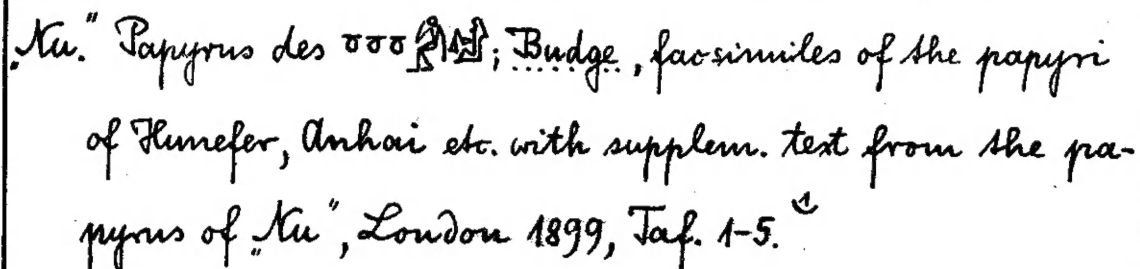 „Nu.“ Papyrus des 𓏌𓏌𓏌; Budge, facsimiles of the papyri
of Hunefer, Anhai etc. with supplem. text from the pa-
pyrus of „Nu“, London 1899, Taf. 1-5. 1)